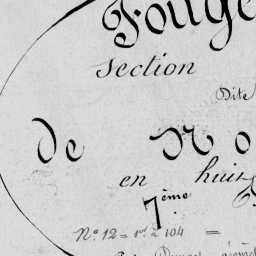 Fouge
Section
Dite
de No
en huit
7ème
N° 12 = 1er à 104 =